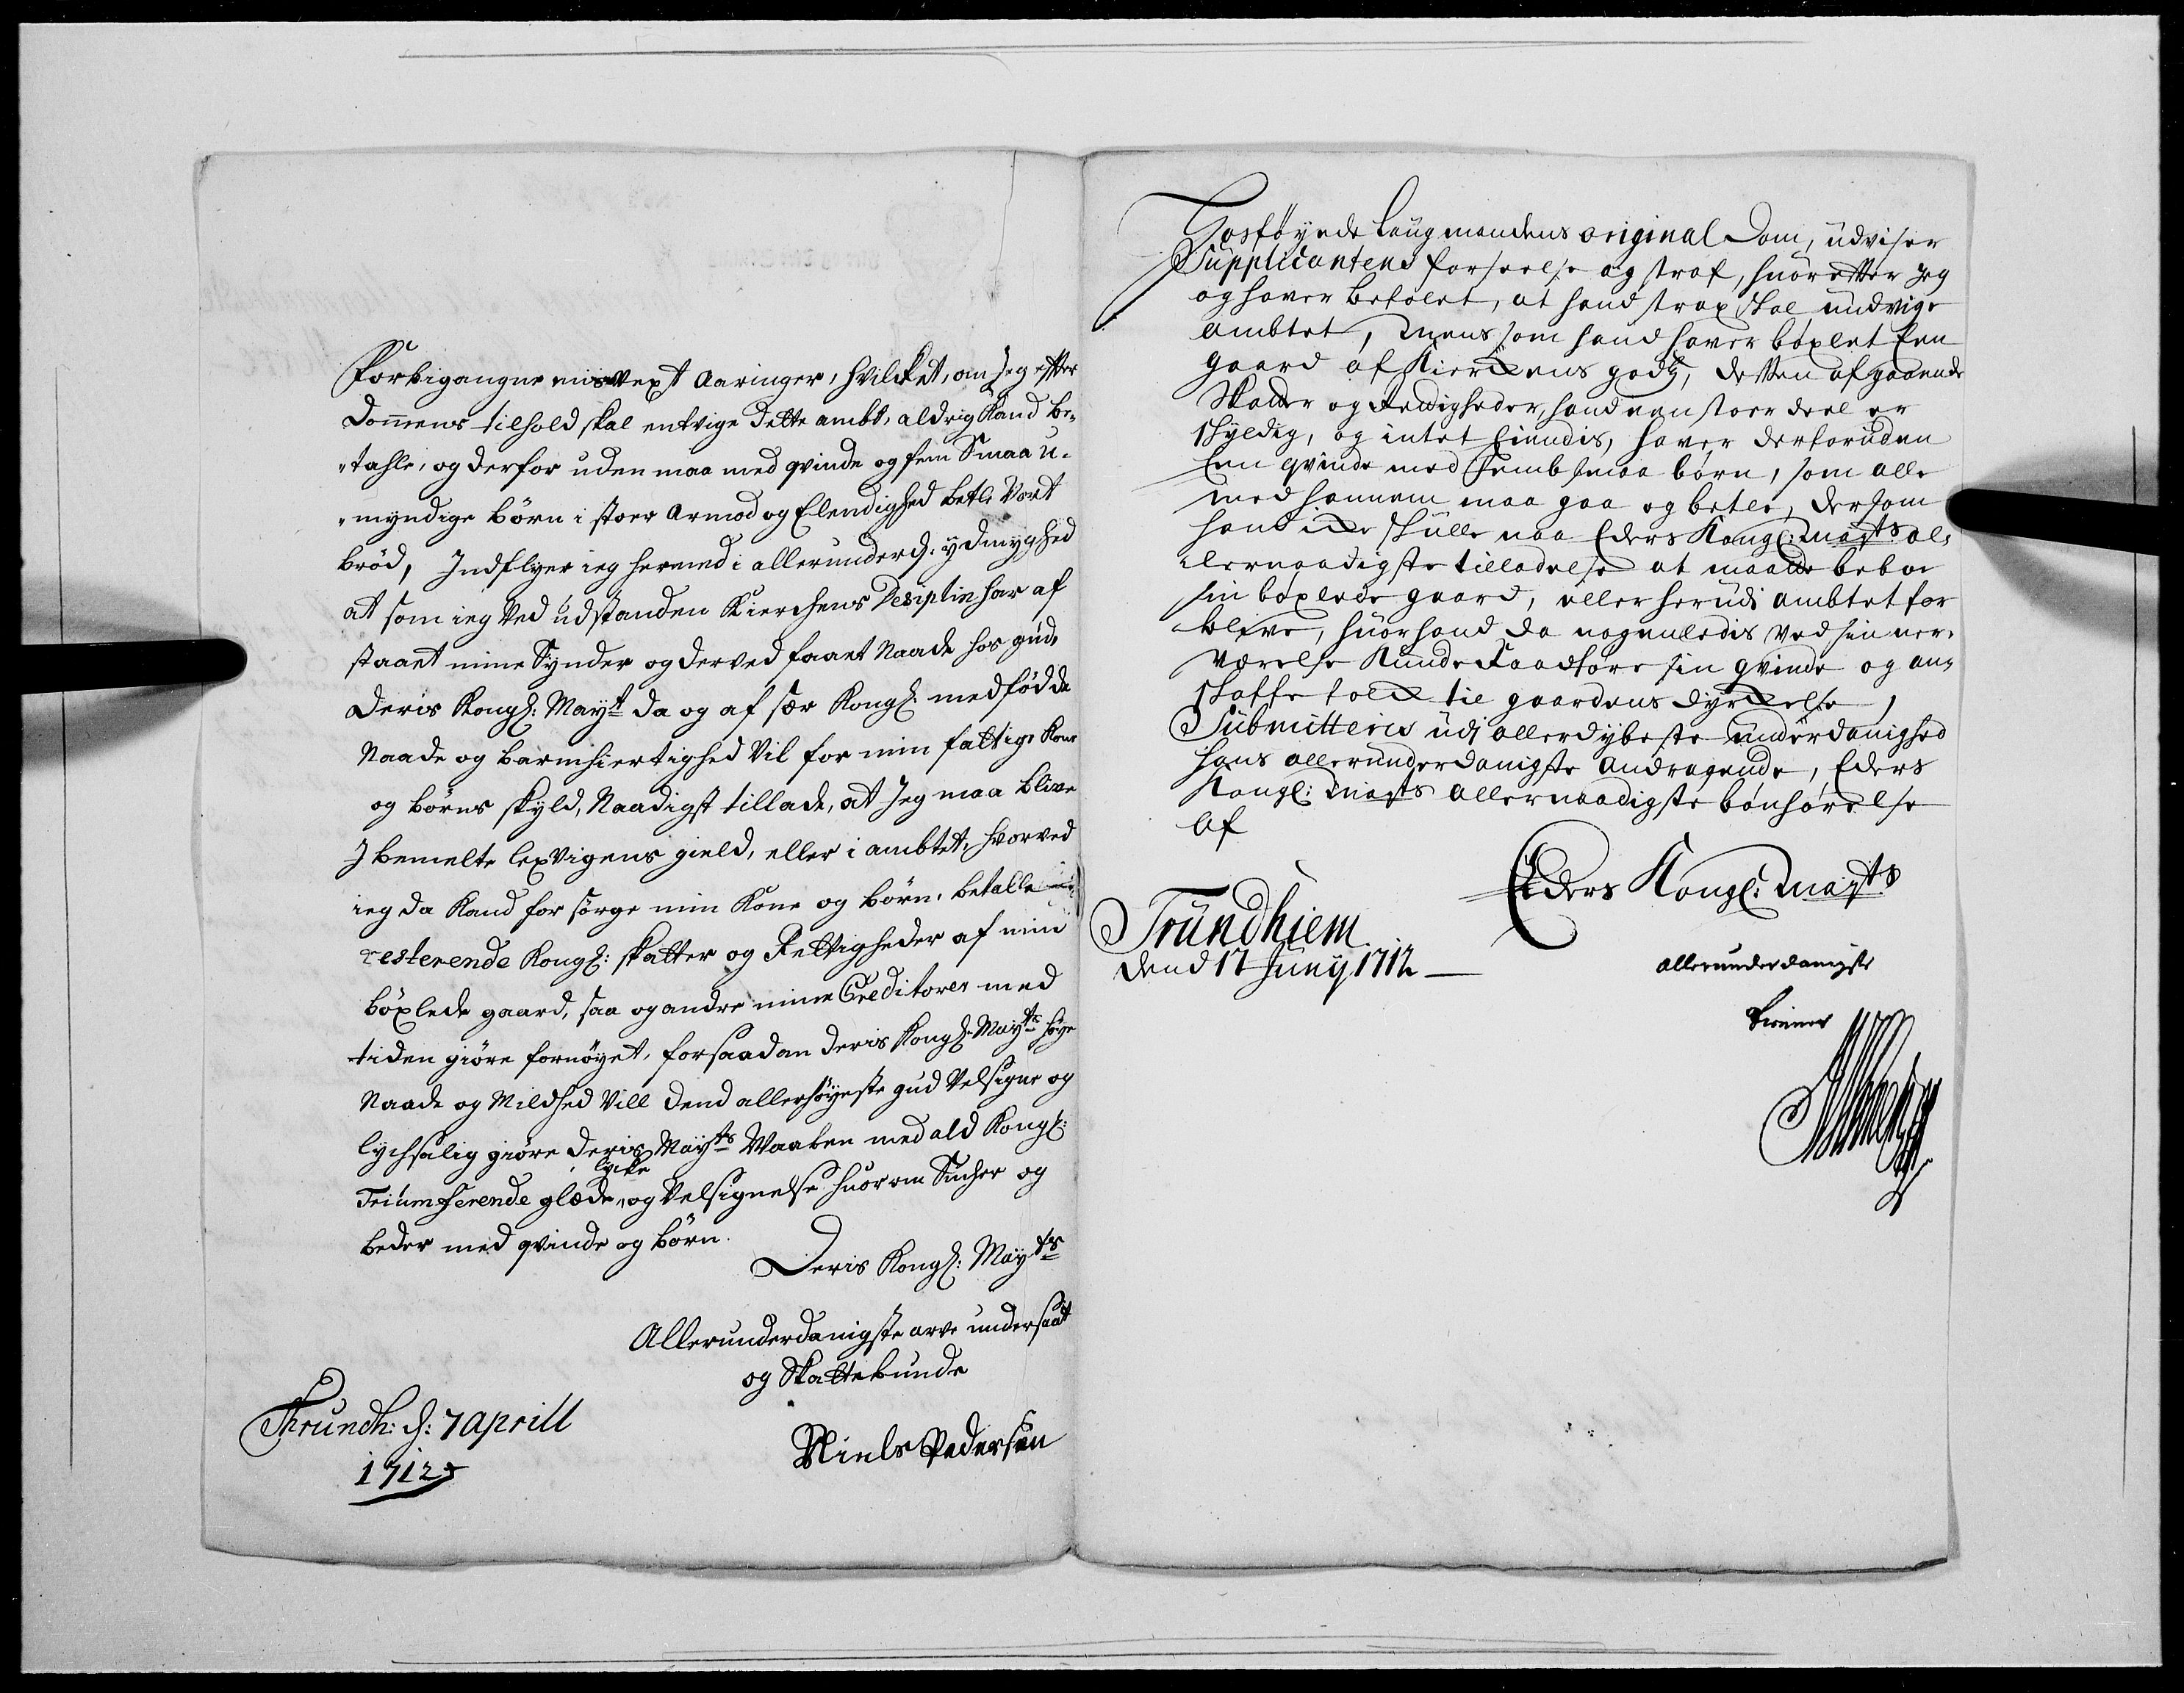 Forbigangne misvext Aaringer, hvilcket, om Jeg efter
Dommens tilhold skal entvige dette ambt, aldrig Kand be-
"tahle, og derfor uden maa med qvinde og fem Smaa u-
"myndige børn i stoer Armod og Elendighed betle Vort
brød, Indflyer ieg hermed i allerunderd: ydmyghed
at som ieg Ved udstanden Kierchens Desiplin har af
staaet mine Synder og derved faaet Naade hos gud,
Deris Kongl: Mayt da og af sær Kongl: medfødde
Naade og barmhiertighed Vil for min fattige Kone
og børns skyld, Naadigst tillade, at Jeg maa blive
J bemelte lexvigens gield, eller i ambtet, hvorved
ieg da Kand for sørge min Kone og børn, betalle
resterende Kongl: skatter og Rettigheder af min
bøxlede gaard, saa og andre mine Creditorer med
tiden giøre fornøyet, forsaadan Deris Kongl: Mayts høye
Naade og Mildhed Vill Dend allerhøyeste gud Velsigne og
lychsalig giøre Deris Mayts Waaben med ald Kongl:
lycke
Triumferende glæde, og Velsignelse huorom Sucher og
beder med qvinde og børn.
Deris Kongl: Mayts
Allerunderdanigste arve undersaat
og Skattebunde
Thrundh: d: 7 Aprill
1712
Niels Pedersen
Hosføyede Laugmandens original Dom, udviser
Supplicantens forseelse og straf, huorefter Jeg
og haver befalet, at hand strax skal undvige
Ambtet, Mens som hand haver bøxlet Een
gaard af Kierckens gods, dessen afgaaende
Skatter og Rettigheder, hand een stoer deel er
skyldig, og intet Eiendis, haver derforuden
Een qvinde med Femb smaa børn, som alle
med hannem maa gaa og betle, dersom
hand icke skulle naa Eders Kongl: Mayts al-
lernaadigste tilladelse at maatte beboe
sin bøxlede gaard, eller herudi ambtet for
blive, huor hand da nogenledis Ved sin ner-
Værelse Kunde Raadføre sin qvinde og an-
skaffe folck til gaardens dyrckelse,
Submitteris udi allerdybeste underdanighed
Hans allerunderdanigste Andragende, Eders
Kongl: Mayts allernaadigste bønhørelse
Af
Eders Kongl: Mayts
Trundhiem
dend 17 Juny 1712
allerunderdanigste
tienner